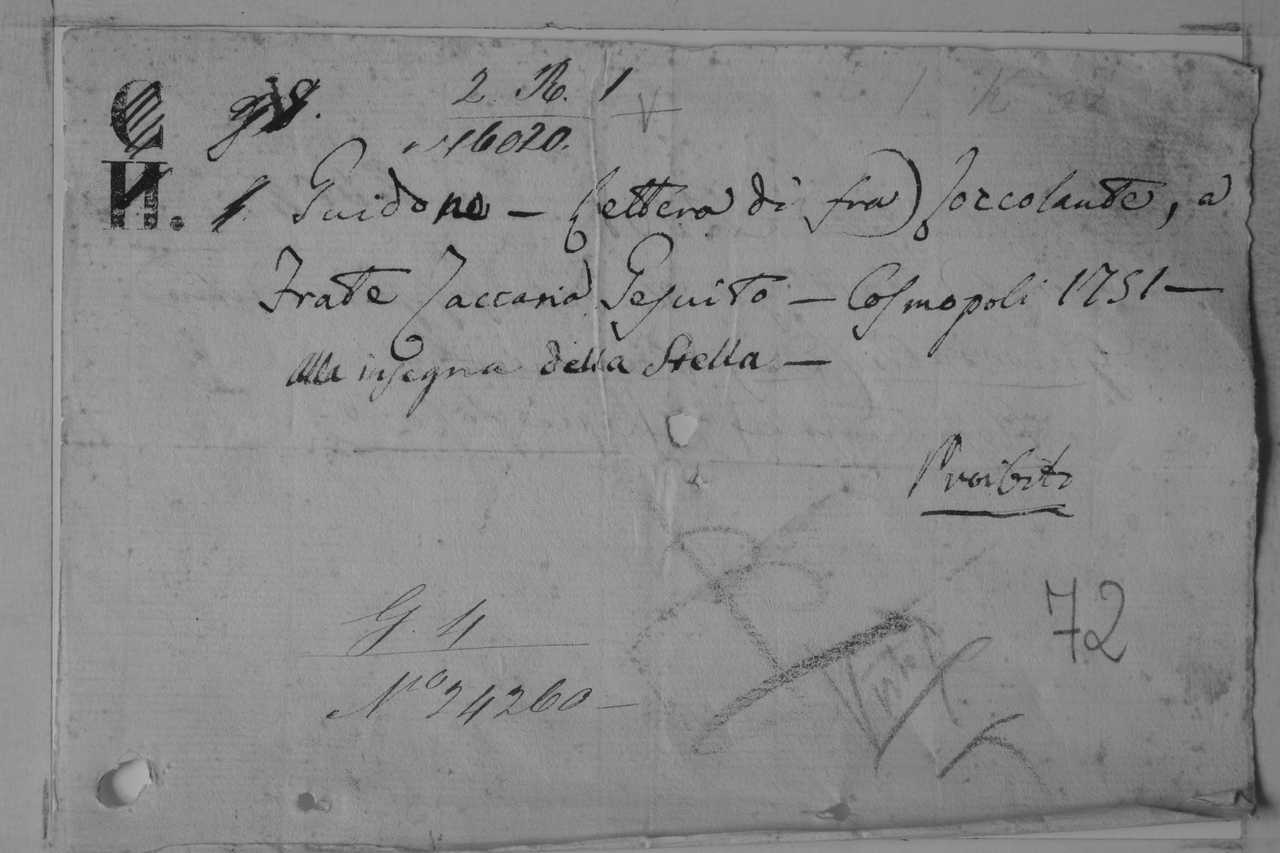 2. R. 1
N. 16020.
N. 1. Guidone – Lettera di fra) Zoccolante, a
Frate Zaccaria Gesuito – Cosmopoli 1751 –
alla insegna della Stella –
Proibiti
G. 4
72
Nº 24260 –
Visto